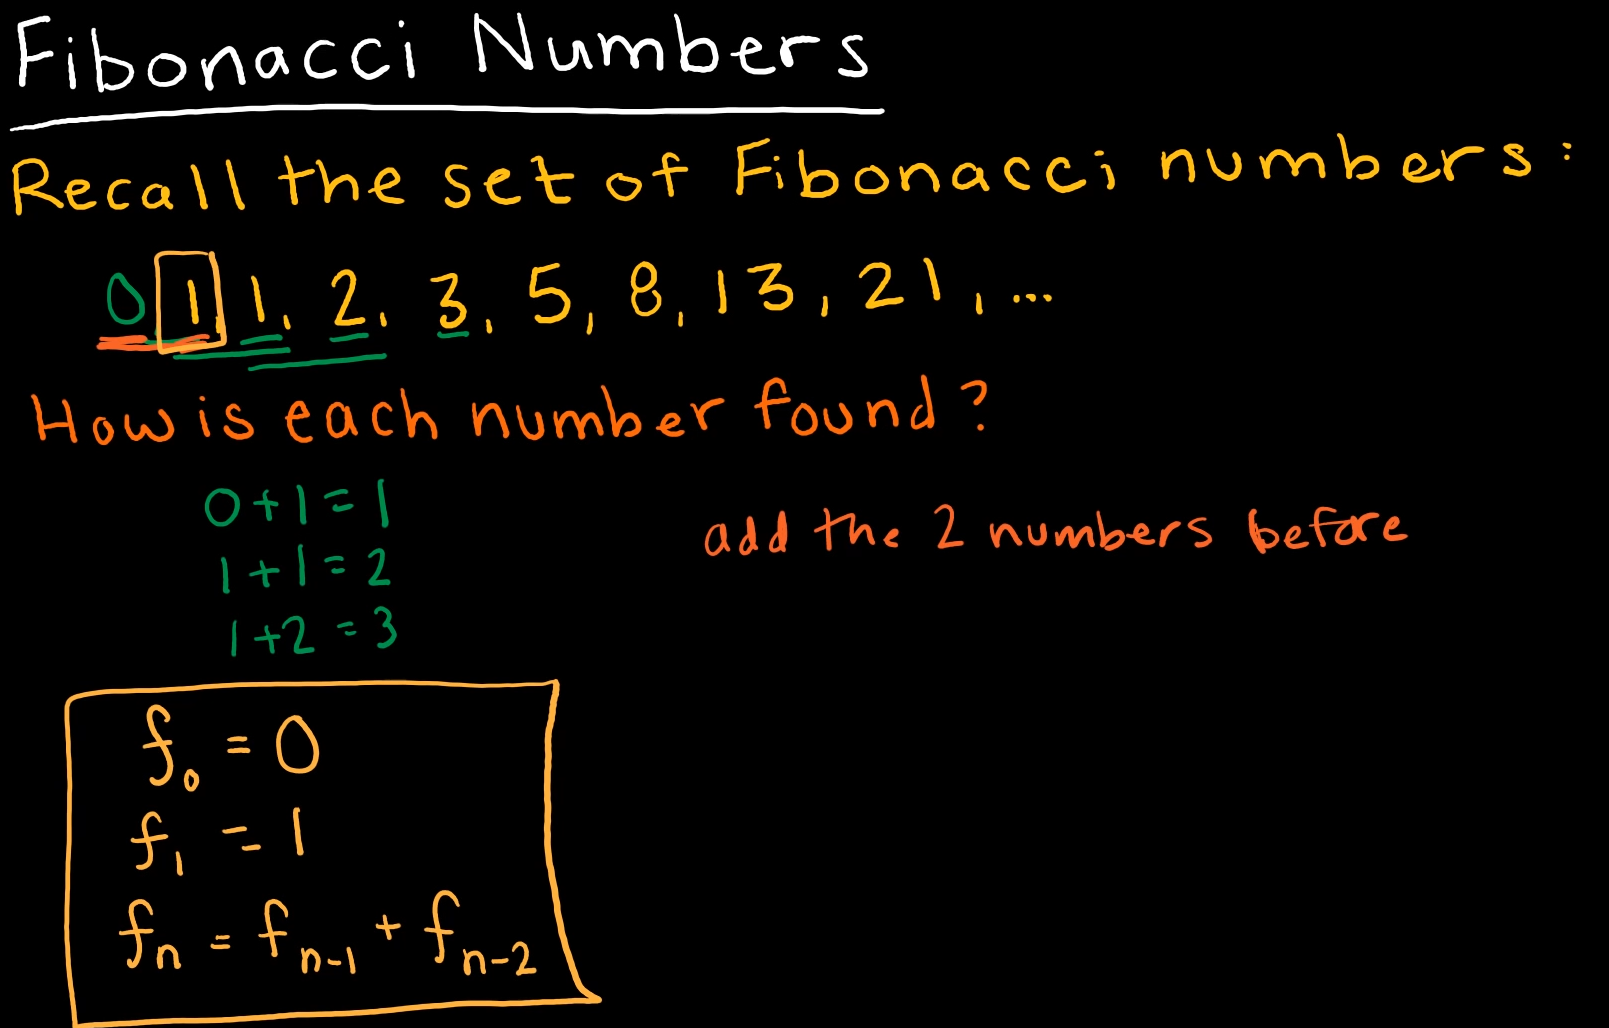 Fibonacci Numbers
Recall the set of Fibonacci numbers:
0, 1, 1, 2, 3, 5, 8, 13, 21, ...
How is each number found?
0+1=1
1+1=2
1+2=3
add the 2 numbers before
f₀ = 0
f₁ = 1
fₙ = fₙ₋₁ + fₙ₋₂